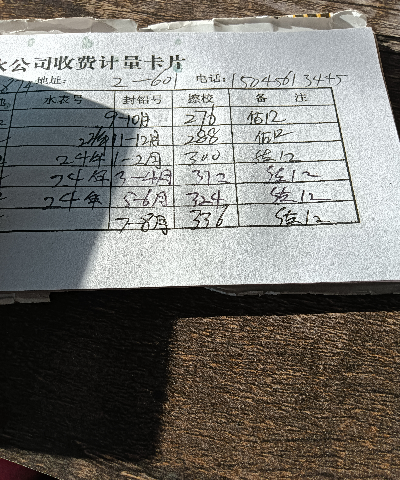 水公司收费计量卡片
地址: 2-601 电话: 15045613445
水表号 封铅号 底校 备 注
9-10月 276 估12
23年 11-12月 288 估12
24年 1-2月 300 估12
24年 3-4月 312 估12
24年 5-6月 324 估12
7-8月 336 估12